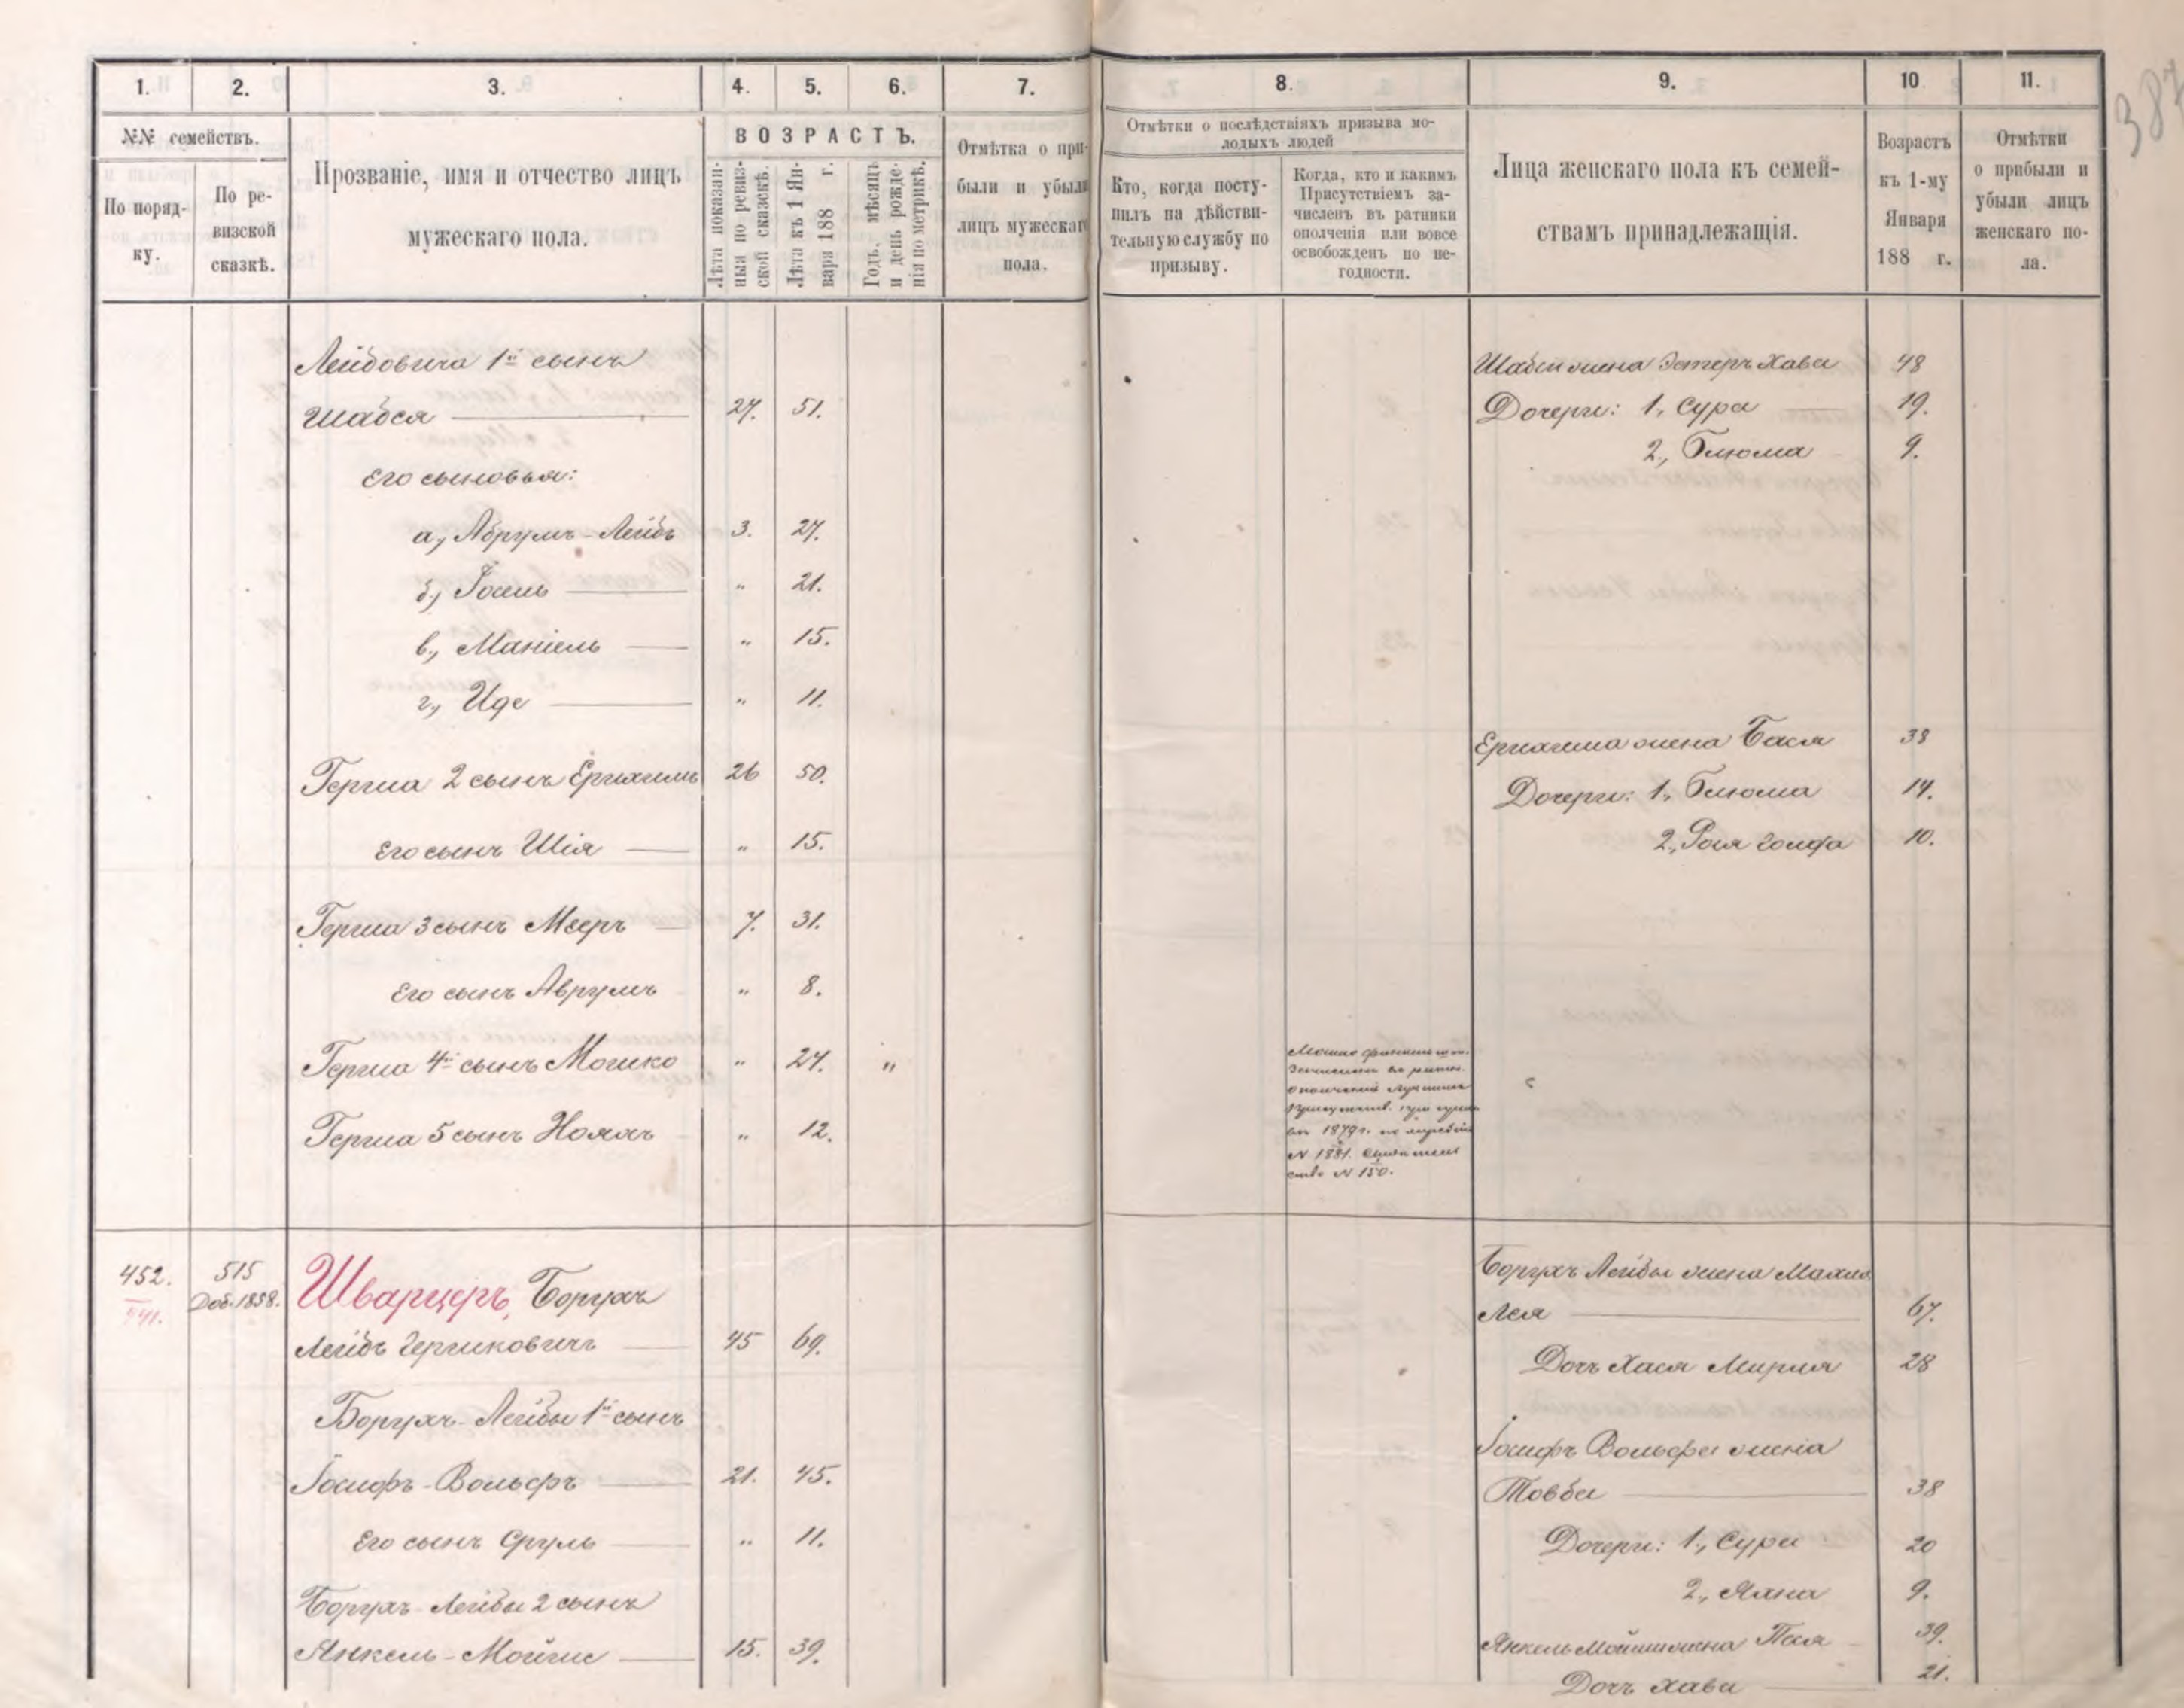 387
1.
2.
3.
4.
5.
6.
7.
№№ семействъ.
По поряд-
ку.
По ре-
визской
сказкѣ.
Прозваніе, имя и отчество лицъ
мужескаго пола.
ВОЗРАСТЪ.
Лѣта показан-
ныя по ревиз-
ской сказскѣ.
Лѣта къ 1 Ян-
варя 188 г.
Годъ, мѣсяцъ
и день рожде-
нія по метрикѣ.
Отмѣтка о при-
были и убыли
лицъ мужескаго
пола.
Лейбовича 1й сынъ
Шабся 27. 51.
Его сыновья:
а, Абрумъ-Лейбъ 3. 27.
б, Іосиь " 21.
в, Маніель " 15.
г, Иде " 11.
Герша 2 сынъ Ерихимъ 26 50.
Его сынъ Шія " 15.
Герша 3 сынъ Мееръ 7. 31.
Его сынъ Аврумъ " 8.
Герша 4й сынъ Мошко " 24. "
Герша 5 сынъ Нояхъ " 12.
452. 515 Шварцеръ, Борухъ
Доб. 1858.
Лейбъ Гершковичъ 45 69.
Борухъ-Лейбы 1й сынъ
Іосифъ-Вольфъ 21. 45.
Его сынъ Сруль " 11.
Борухъ-Лейбы 2 сынъ
Янкель-Мойше 15. 39.
8.
9.
10
11.
Отмѣтки о послѣдствіяхъ призыва мо-
лодыхъ людей
Кто, когда посту-
пилъ на дѣйстви-
тельную службу по
призыву.
Когда, кто и какимъ
Присутствіемъ за-
численъ въ ратники
ополченія или вовсе
освобожденъ по не-
годности.
Лица женскаго пола къ семей-
ствамъ принадлежащія.
Возрастъ
къ 1-му
Января
188 г.
Отмѣтки
о прибыли и
убыли лицъ
женскаго по-
ла.
Шабси жена Эстеръ Хава 48
Дочери: 1, Сура 19.
2, Блюма 9.
Ерихима жена Бася 38
Дочери: 1, Блюма 14.
2, Рося Голда 10.
Мошко
въ 1879г. по жребію
N 1881. Свидѣтель
ство N 150.
Борухъ Лейбы жена Махля
Лея 67.
Дочь Хася Мирля 28
Іосифъ Вольфа жена
Товба 38
Дочери: 1, Сура 20
2, Яхна 9.
Янкель Мойши жена Песя 39.
Дочь Хава 21.